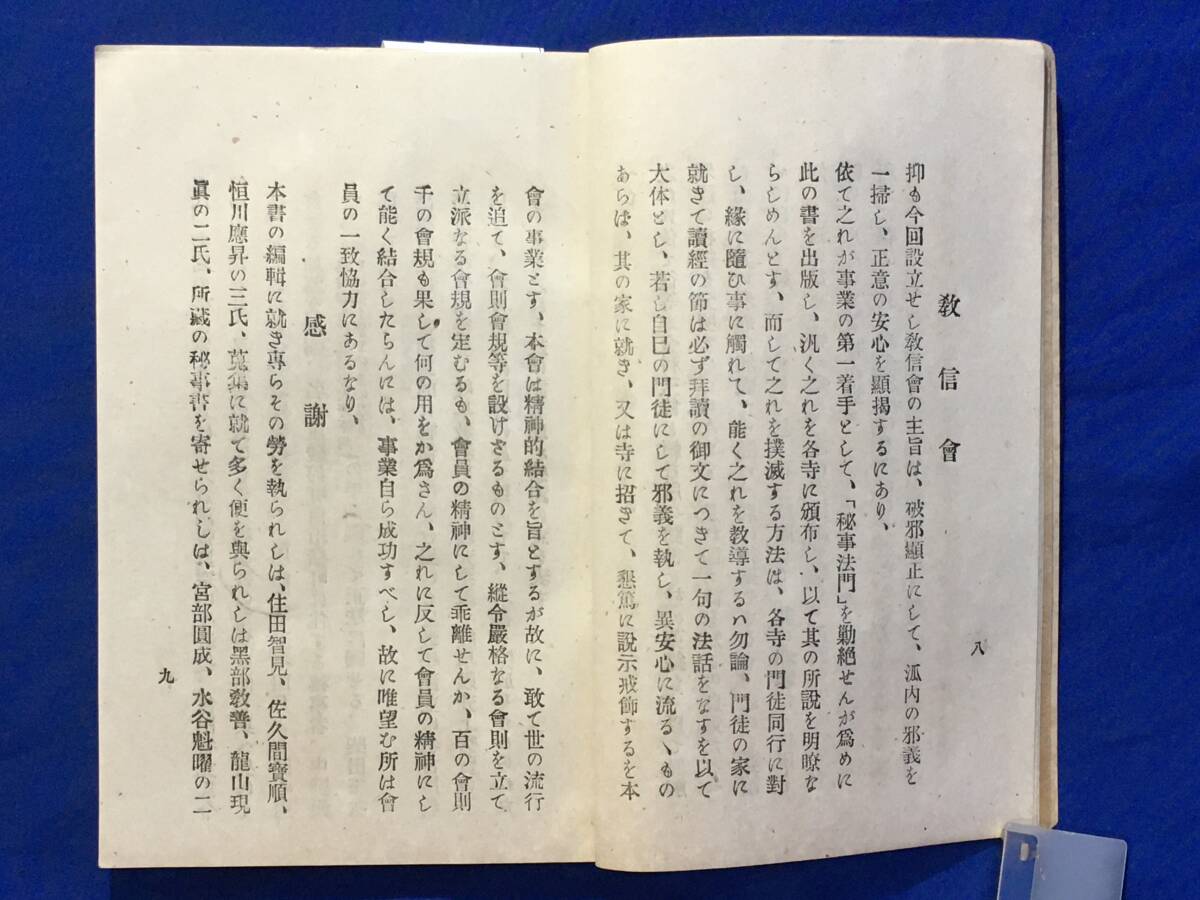 教信會
抑も今回設立せし教信會の主旨は、破邪顯正にして、派内の邪義を
一掃し、正意の安心を顯揭するにあり、
依て之れが事業の第一着手として、「秘事法門」を勦絶せんが爲めに
此の書を出版し、汎く之れを各寺に頒布し、以て其の所説を明瞭な
らしめんとす、而して之れを撲滅する方法は、各寺の門徒同行に對
し、緣に隨ひ事に觸れて、能く之れを教導するハ勿論、門徒の家に
就きて讀經の節は必ず拜讀の御文につきて一句の法話をなすを以て
大体とし、若し自己の門徒にして邪義を執し、異安心に流るゝもの
あらば、其の家に就き、又は寺に招きて、懇篤に説示戒飾するを本
八
會の事業とす、本會は精神的結合を旨とするが故に、敢て世の流行
を追て、會則會規等を設けざるものとす、縱令嚴格なる會則を立て
立派なる會規を定むるも、會員の精神にして乖離せんか、百の會則
千の會規も果して何の用をか爲さん、之れに反して會員の精神にし
て能く結合したらんには、事業自ら成功すべし、故に唯望む所は會
員の一致協力にあるなり、
感謝
本書の編輯に就き專らその勞を執られしは、住田智見、佐久間寶順、
恒川應昇の三氏、蒐集に就て多く便を與られしは黑部敎善、龍山現
眞の二氏、所藏の秘事書を寄せられしは、宮部圓成、水谷魁曜の二
九